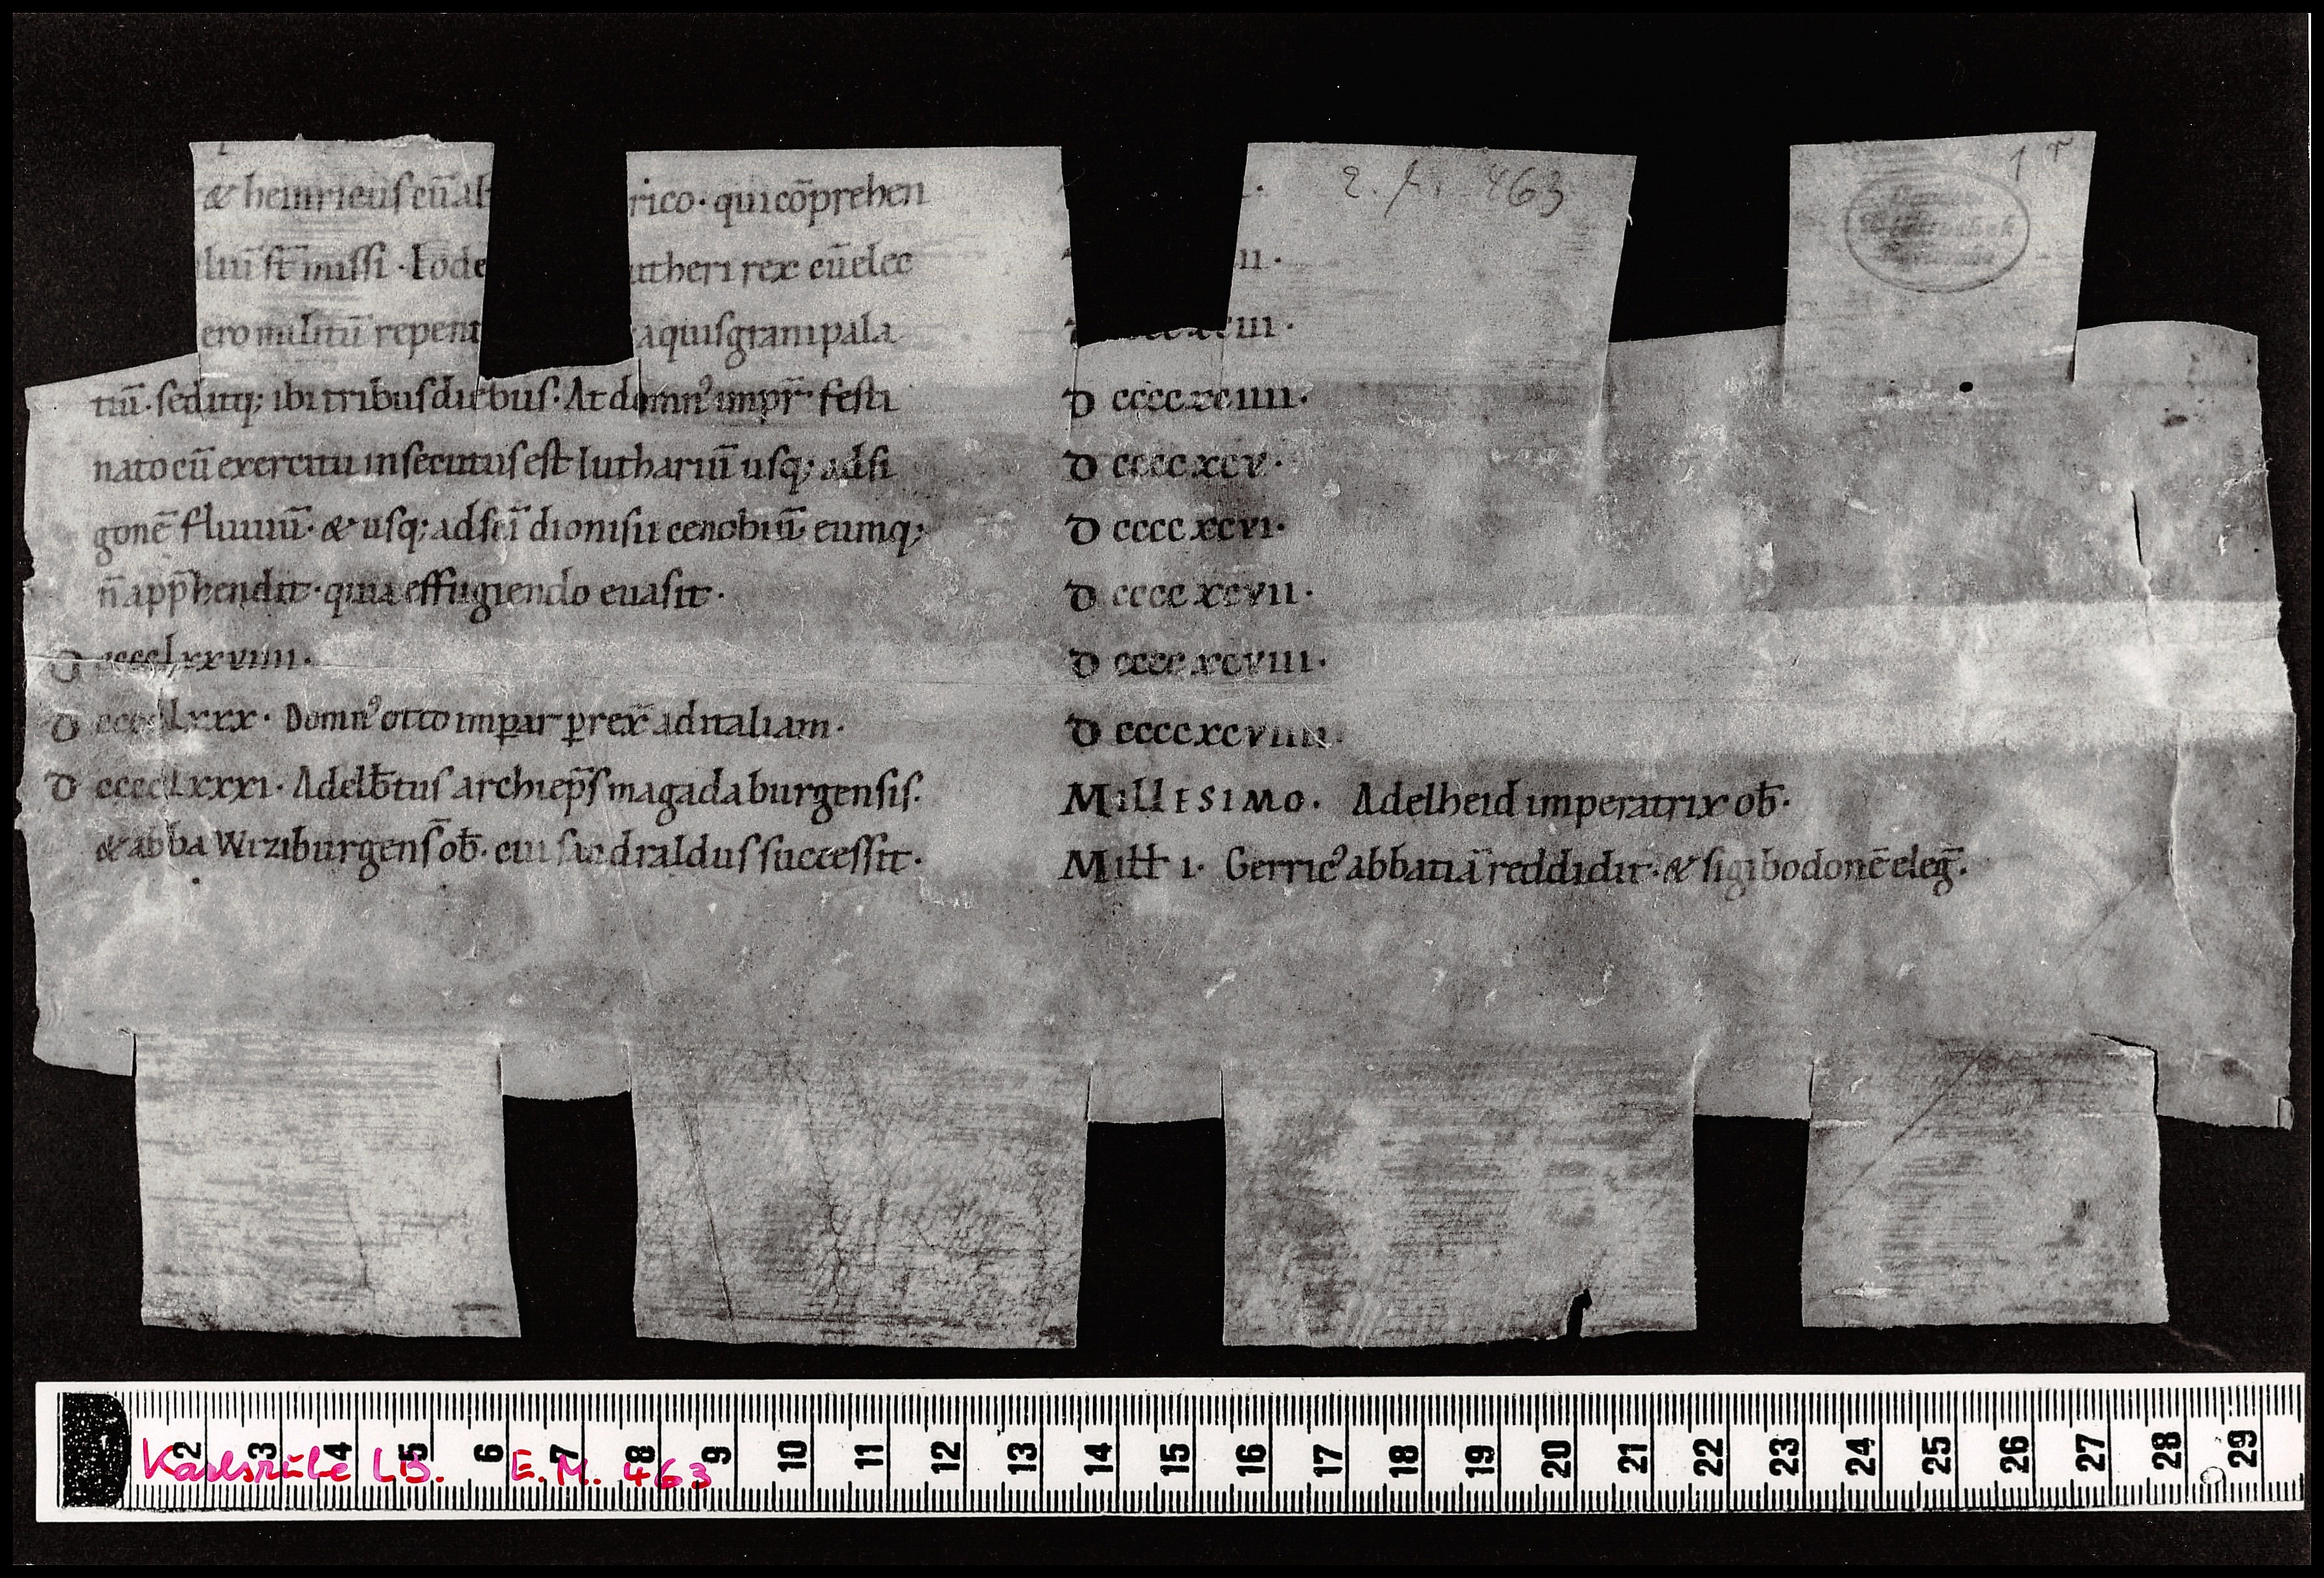 & heinricus cū alt rico · qui cōprehen
luī st̄ missi · Eode utheri rex cū elec
ero militū repent aquisgrani pala
tiū · seditq; ibi tribus diebus · At domn᾽ impr̄ festi
nato cū exercitu insecutus est luthariū usq; ad si
gonē fluuiū · & usq; ad sc̄i dionisii cenobiū · eumq;
n̄ app̄hendit · quia effugiendo euasit ·
D cccclxxviiii ·
D cccclxxx · Domn᾽ otto imꝑat ꝑrex̄ ad italiam ·
D cccclxxxi · Adelb̄tus archiep̄s magadaburgensis ·
& abba Wiziburgens̄ ob̄ · cui sandraldus successit ·
ii ·
iii ·
D ccccxciiii ·
D ccccxcv ·
D ccccxcvi ·
D ccccxcvii ·
D ccccxcviii ·
D ccccxcviiii ·
MillESIMO · Adelheid imperatrix ob̄ ·
Miłł i · Gerric᾽ abbatiā reddidit · & sigibodonē eleg̅ ·
463
1 r
2 3 4 5 6 7 8 9 10 11 12 13 14 15 16 17 18 19 20 21 22 23 24 25 26 27 28 29
Karlsruhe LB. E.M. 463